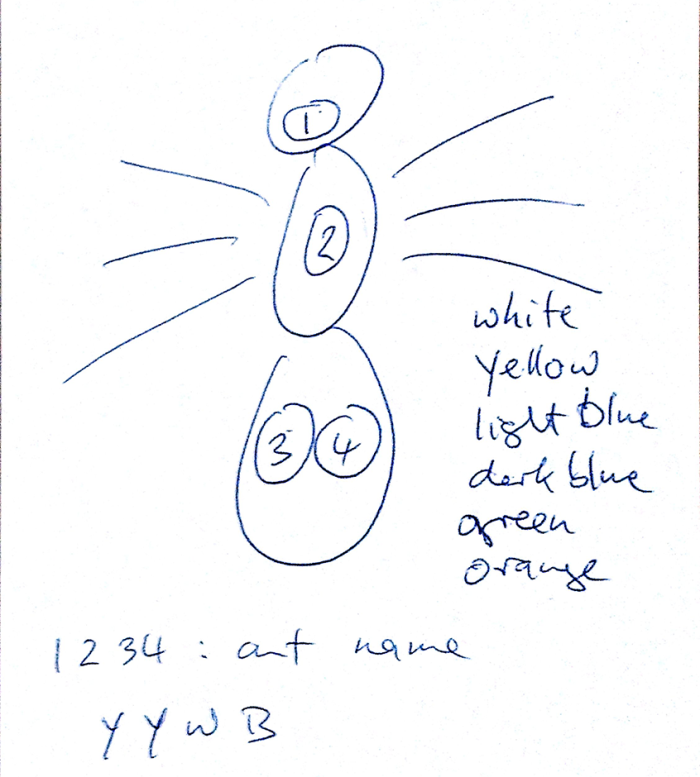 1
2
3 4
white
yellow
light blue
dark blue
green
orange
1 2 3 4 : ant name
Y Y W B